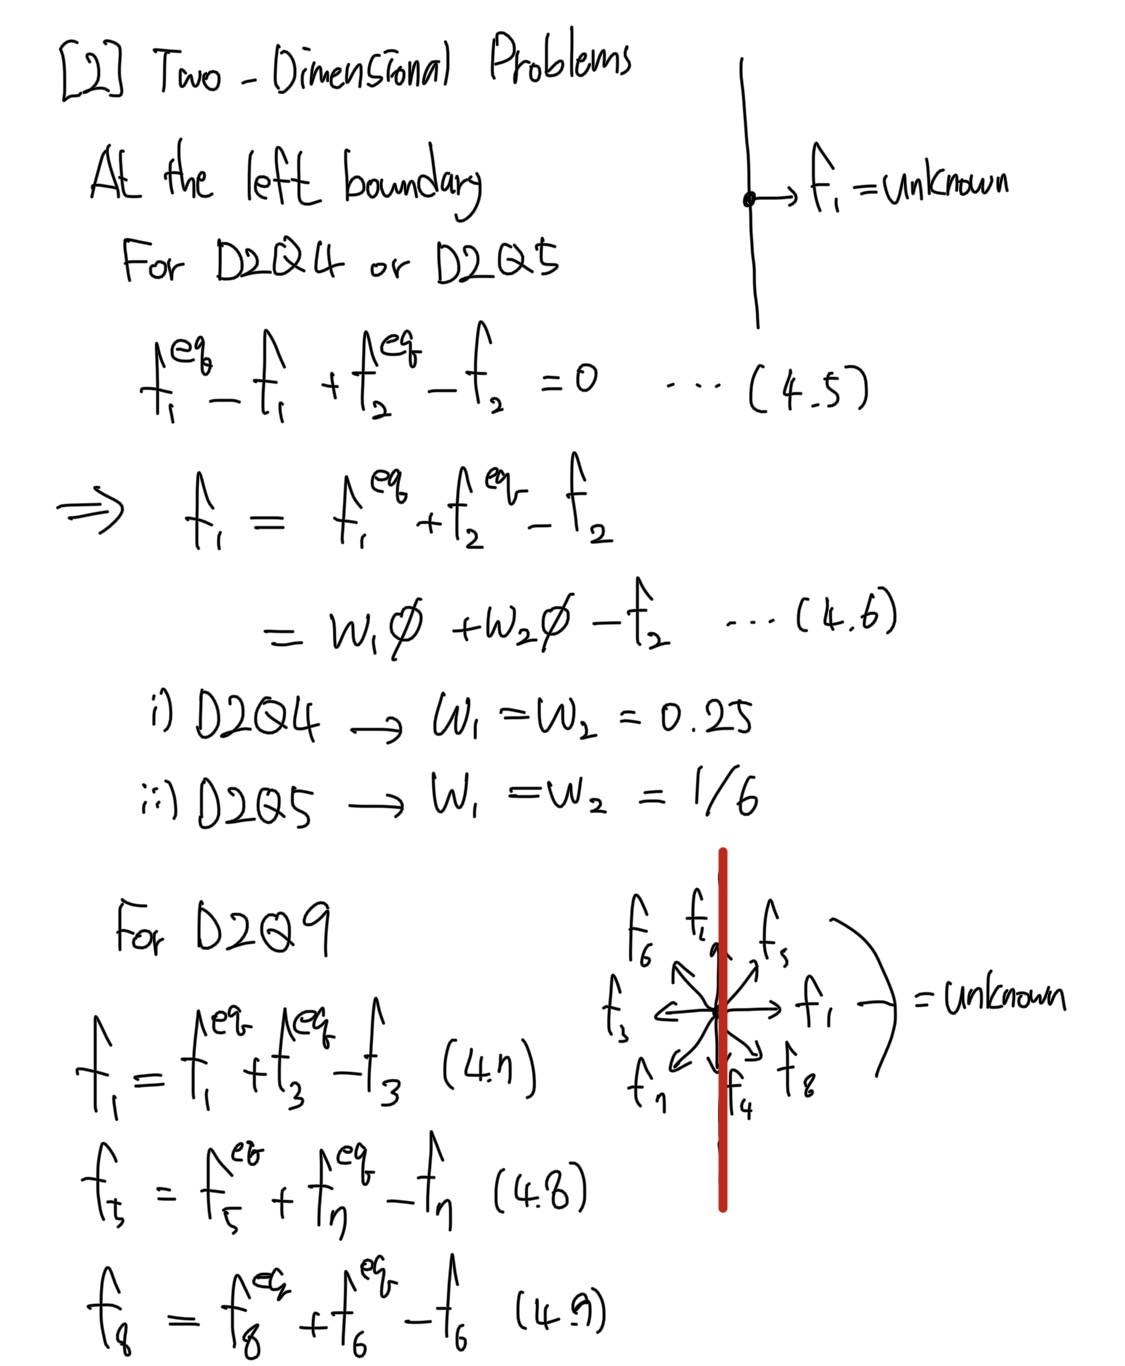 [2] Two-Dimensional Problems
At the left boundary
f₁ = unknown
For D2Q4 or D2Q5
f₁^eq - f₁ + f₂^eq - f₂ = 0 ... (4.5)
⇒ f₁ = f₁^eq + f₂^eq - f₂
= w₁∅ + w₂∅ - f₂ ... (4.6)
i) D2Q4 → W₁ = W₂ = 0.25
ii) D2Q5 → W₁ = W₂ = 1/6
For D2Q9
f₆ f₂ f₅
f₃ f₁ = unknown
f₇ f₄ f₈
f₁ = f₁^eq + f₃^eq - f₃ (4.7)
f₅ = f₅^eq + f₇^eq - f₇ (4.8)
f₈ = f₈^eq + f₆^eq - f₆ (4.9)